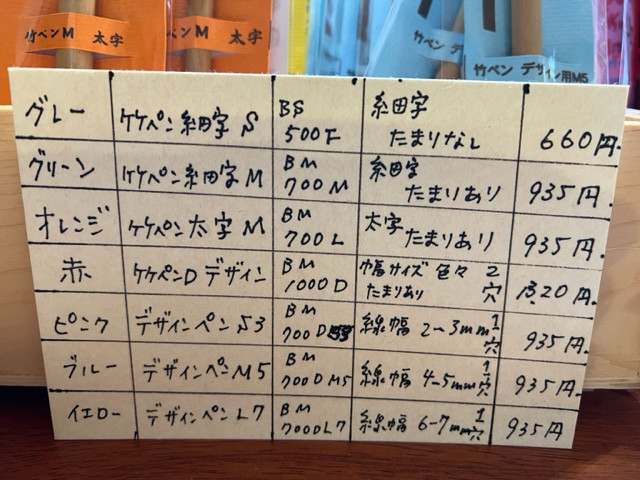 竹ペンM 太字
竹ペンM 太字
竹ペン デ
竹ペン デザイン用M5
グレー ケケペン細字 S BS 500F 細字 たまりなし 660円.
グリーン ケケペン細字 M BM 700M 細字 たまりあり 935円.
オレンジ ケケペン太字 M BM 700L 太字 たまりあり 935円.
赤 ケケペンD デザイン BM 1000D 幅サイズ 色々 2穴 たまりあり 1320円.
ピンク デザインペン S3 BM 700D S3 線幅 2-3mm 1穴 935円.
ブルー デザインペン M5 BM 700D M5 線幅 4-5mm 1穴 935円.
イエロー デザインペン L7 BM 700DL7 線幅 6-7mm 1穴 935円